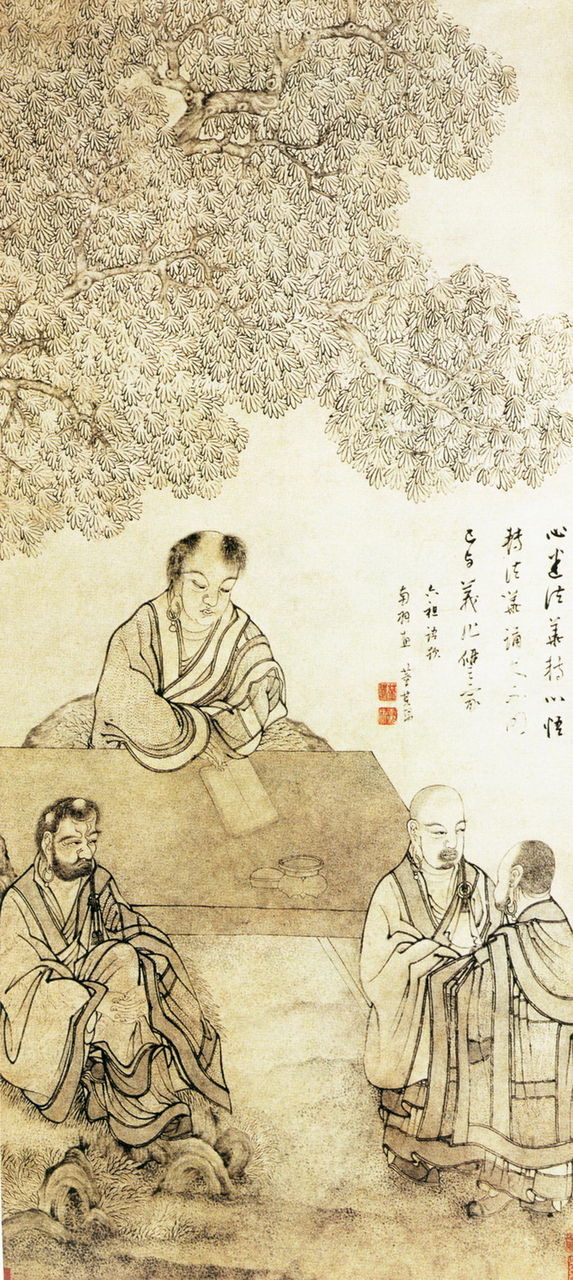 心迷法華轉心悟
轉法華誦久不明
己与義作讎家
六祖語
南羽画 董其昌